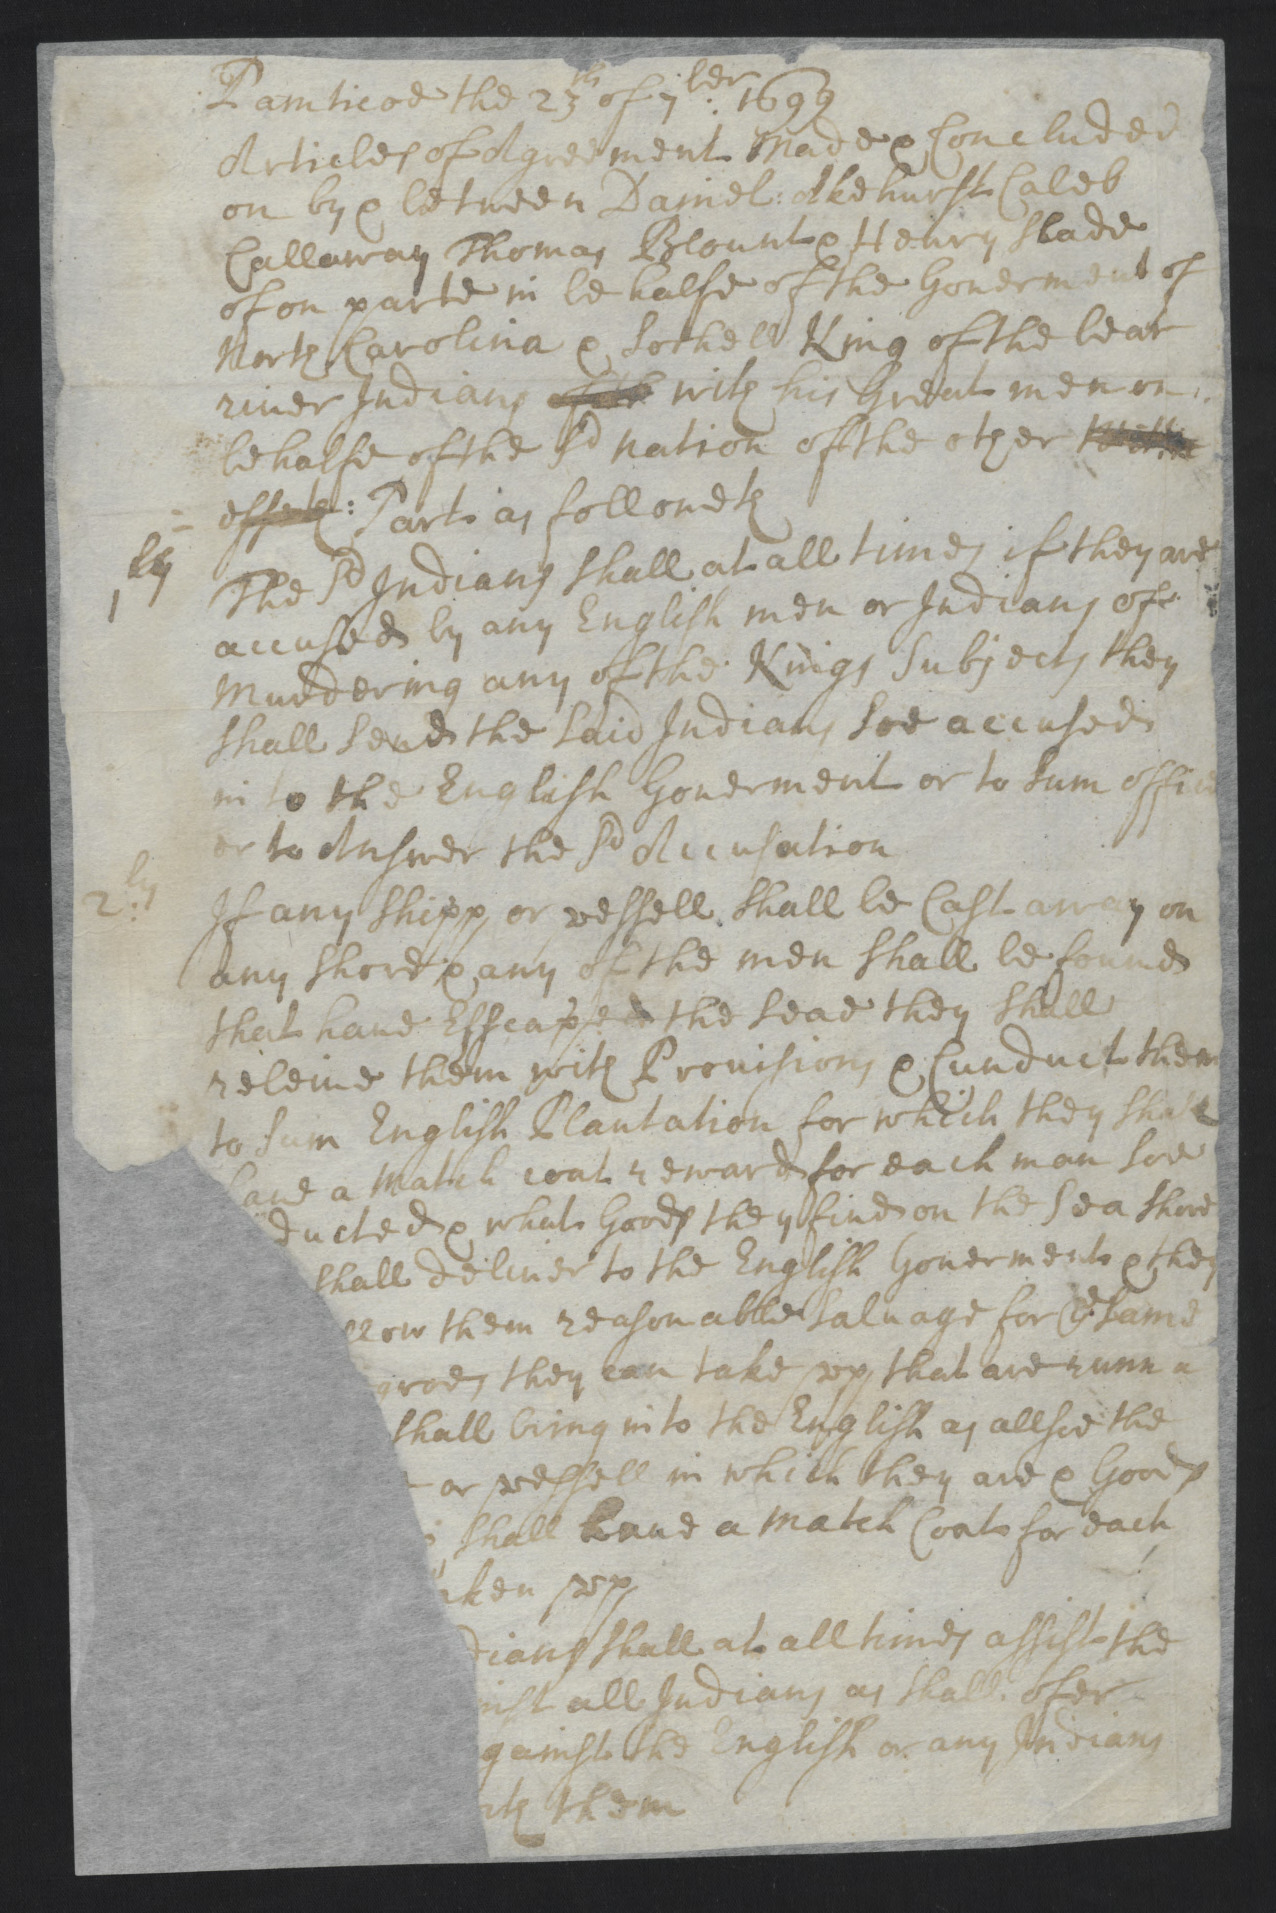 Pamticoe the 23th of 7ber: 1699
Articles of Agreement Made & Concluded
on by & between Daniel: Akehurst Caleb
Callaway Thomas Blount & Henry Slade
of on parte in behalfe of the Gouerment of
North Carolina & Sothell King of the bear
riuer Indians with his Great men on
behalfe of the Sd nation of the other
Part as followeth
1ly
The Sd Indians Shall at all times if they are
accused by any English men or Indians of
Murdering any of the Kings Subjects they
Shall Send the Said Indians Soe accused
in to the English Gouerment or to Sum offic
er to Answer the Sd Accusation
2ly:
If any Shipp or vessell Shall be Cast away on
any Shore & any of the men Shall be found
that haue Esscaped the Seae they Shall
releiue them with Prouisions & Cunduct them
to Sum English Plantation for which they Shall
haue a Match coat reward for each man Soe
ducted & what Goods they find on the Sea Shore
Shall deliuer to the English Gouerment & they
llow them reasonable Saluage for ye Same
groes they can take vp that are runn a
Shall bring in to the English as allsoe the
or vessell in which they are & Goods
Shall haue a Match Coat for each
aken vp
dians Shall at all times assist the
inst all Indians as Shall ofer
gainst the English or any Indians
ith them